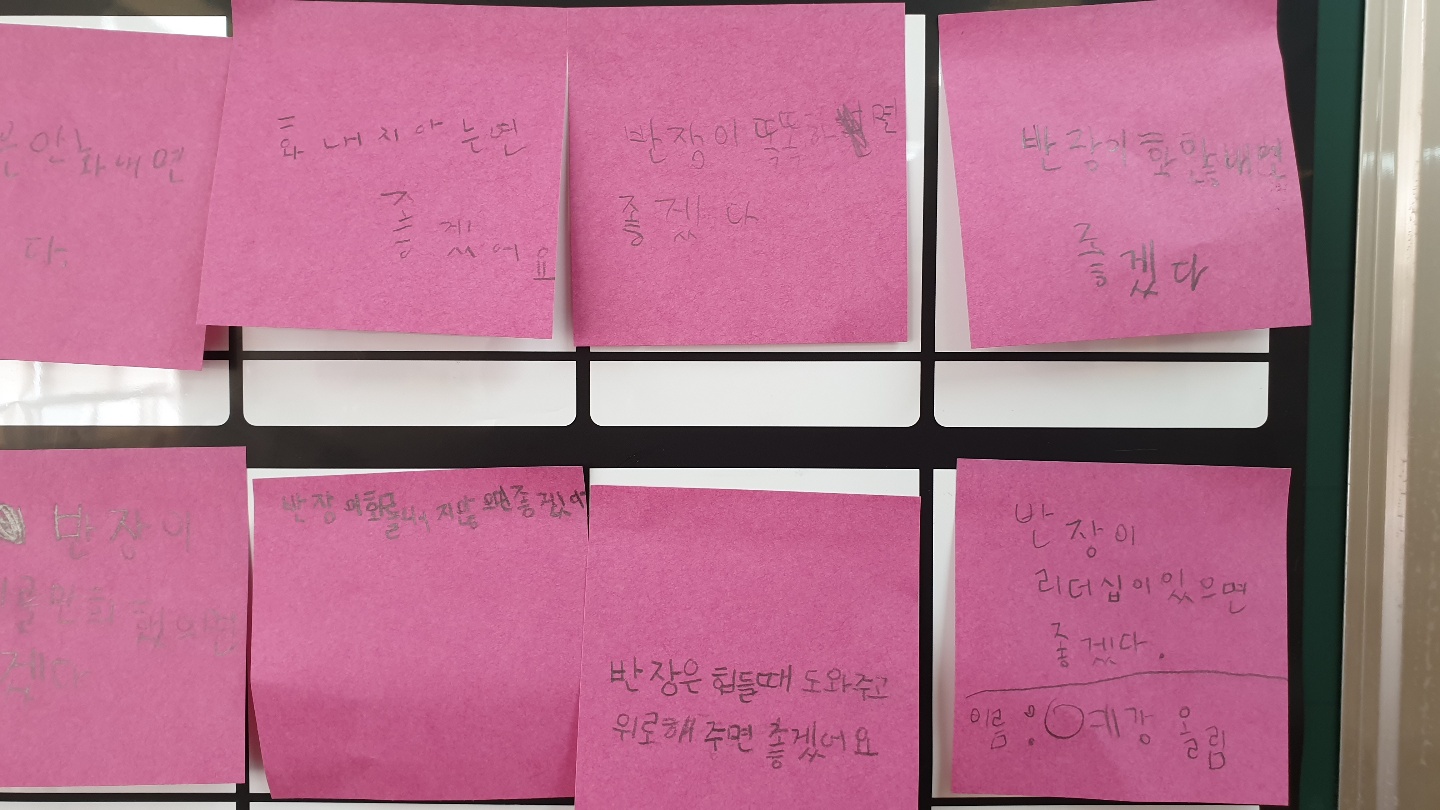 화내지아는면
좋겠어요
반장이 똑똑하면
좋겠다
반장이 화 안 내면
좋겠다
다.
반장이
반장이 화를 내지 않으면 좋겠어
반장은 힘들때 도와주고
위로해 주면 좋겠어요
반장이
리더십이있으면
좋겠다.
이름:○예강 올림